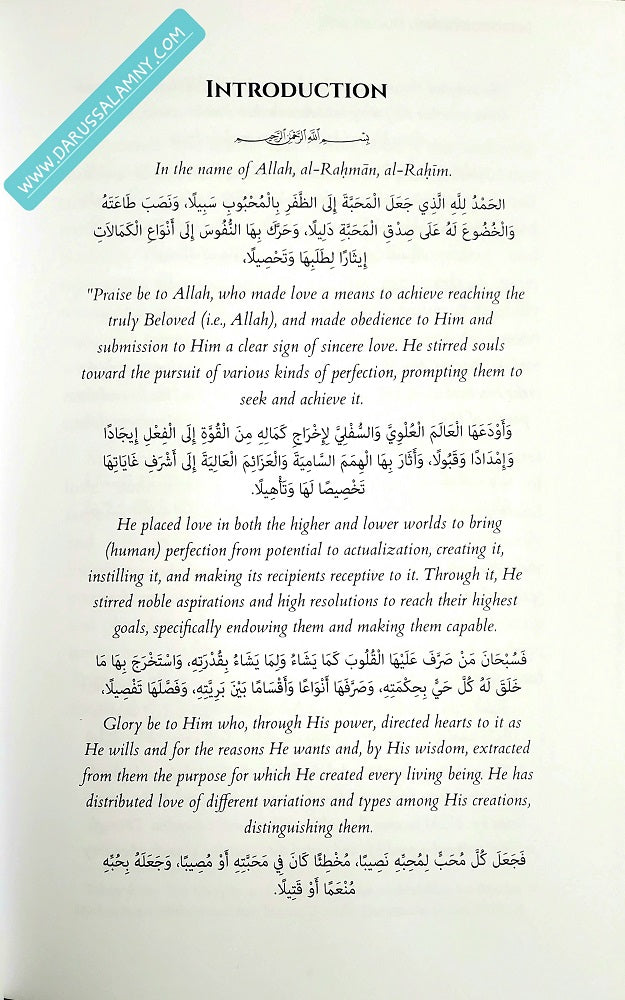 WWW.DARUSSALAMNY.COM
INTRODUCTION
بِسْمِ اللَّهِ الرَّحْمَٰنِ الرَّحِيمِ
In the name of Allah, al-Raḥmān, al-Raḥīm.
الحَمْدُ لِلَّهِ الَّذِي جَعَلَ الْمَحَبَّةَ إِلَى الظَّفَرِ بِالْمُحْبُوبِ سَبِيلًا، وَنَصَبَ طَاعَتَهُ
وَالْخُضُوعَ لَهُ عَلَى صِدْقِ الْمَحَبَّةِ دَلِيلًا، وَحَرَّكَ بِهَا النُّفُوسَ إِلَى أَنْوَاعِ الْكَمَالاَتِ
إِيثَارًا لِطَلَبِهَا وَتَحْصِيلًا،
"Praise be to Allah, who made love a means to achieve reaching the
truly Beloved (i.e., Allah), and made obedience to Him and
submission to Him a clear sign of sincere love. He stirred souls
toward the pursuit of various kinds of perfection, prompting them to
seek and achieve it.
وَأَوْدَعَهَا الْعَالَمَ الْعُلْوِيَّ وَالسُّفْلِيَّ لِإِخْرَاجِ كَمَالِهِ مِنَ الْقُوَّةِ إِلَى الْفِعْلِ إِيجَادًا
وَإِمْدَادًا وَقَبُولًا، وَأَثَارَ بِهَا الْهِمَمَ السَّامِيَةَ وَالْعَزَائِمَ الْعَالِيَةَ إِلَى أَشْرَفِ غَايَاتِهَا
تَخْصِيصًا لَهَا وَتَأْهِيلًا.
He placed love in both the higher and lower worlds to bring
(human) perfection from potential to actualization, creating it,
instilling it, and making its recipients receptive to it. Through it, He
stirred noble aspirations and high resolutions to reach their highest
goals, specifically endowing them and making them capable.
فَسُبْحَانَ مَنْ صَرَّفَ عَلَيْهَا الْقُلُوبَ كَمَا يَشَاءُ وَلِمَا يَشَاءُ بِقُدْرَتِهِ، وَاسْتَخْرَجَ بِهَا مَا
خَلَقَ لَهُ كُلَّ حَيٍّ بِحِكْمَتِهِ، وَصَرَّفَهَا أَنْوَاعًا وَأَقْسَامًا بَيْنَ بَرِيَّتِهِ، وَفَصَّلَهَا تَفْصِيلًا،
Glory be to Him who, through His power, directed hearts to it as
He wills and for the reasons He wants and, by His wisdom, extracted
from them the purpose for which He created every living being. He has
distributed love of different variations and types among His creations,
distinguishing them.
فَجَعَلَ كُلَّ مُحَبٍّ لِمُحِبِّهِ نَصِيبًا، مُخْطِئًا كَانَ فِي مَحَبَّتِهِ أَوْ مُصِيبًا، وَجَعَلَهُ بِحُبِّهِ
مُنْعَمًا أَوْ قَتِيلًا.